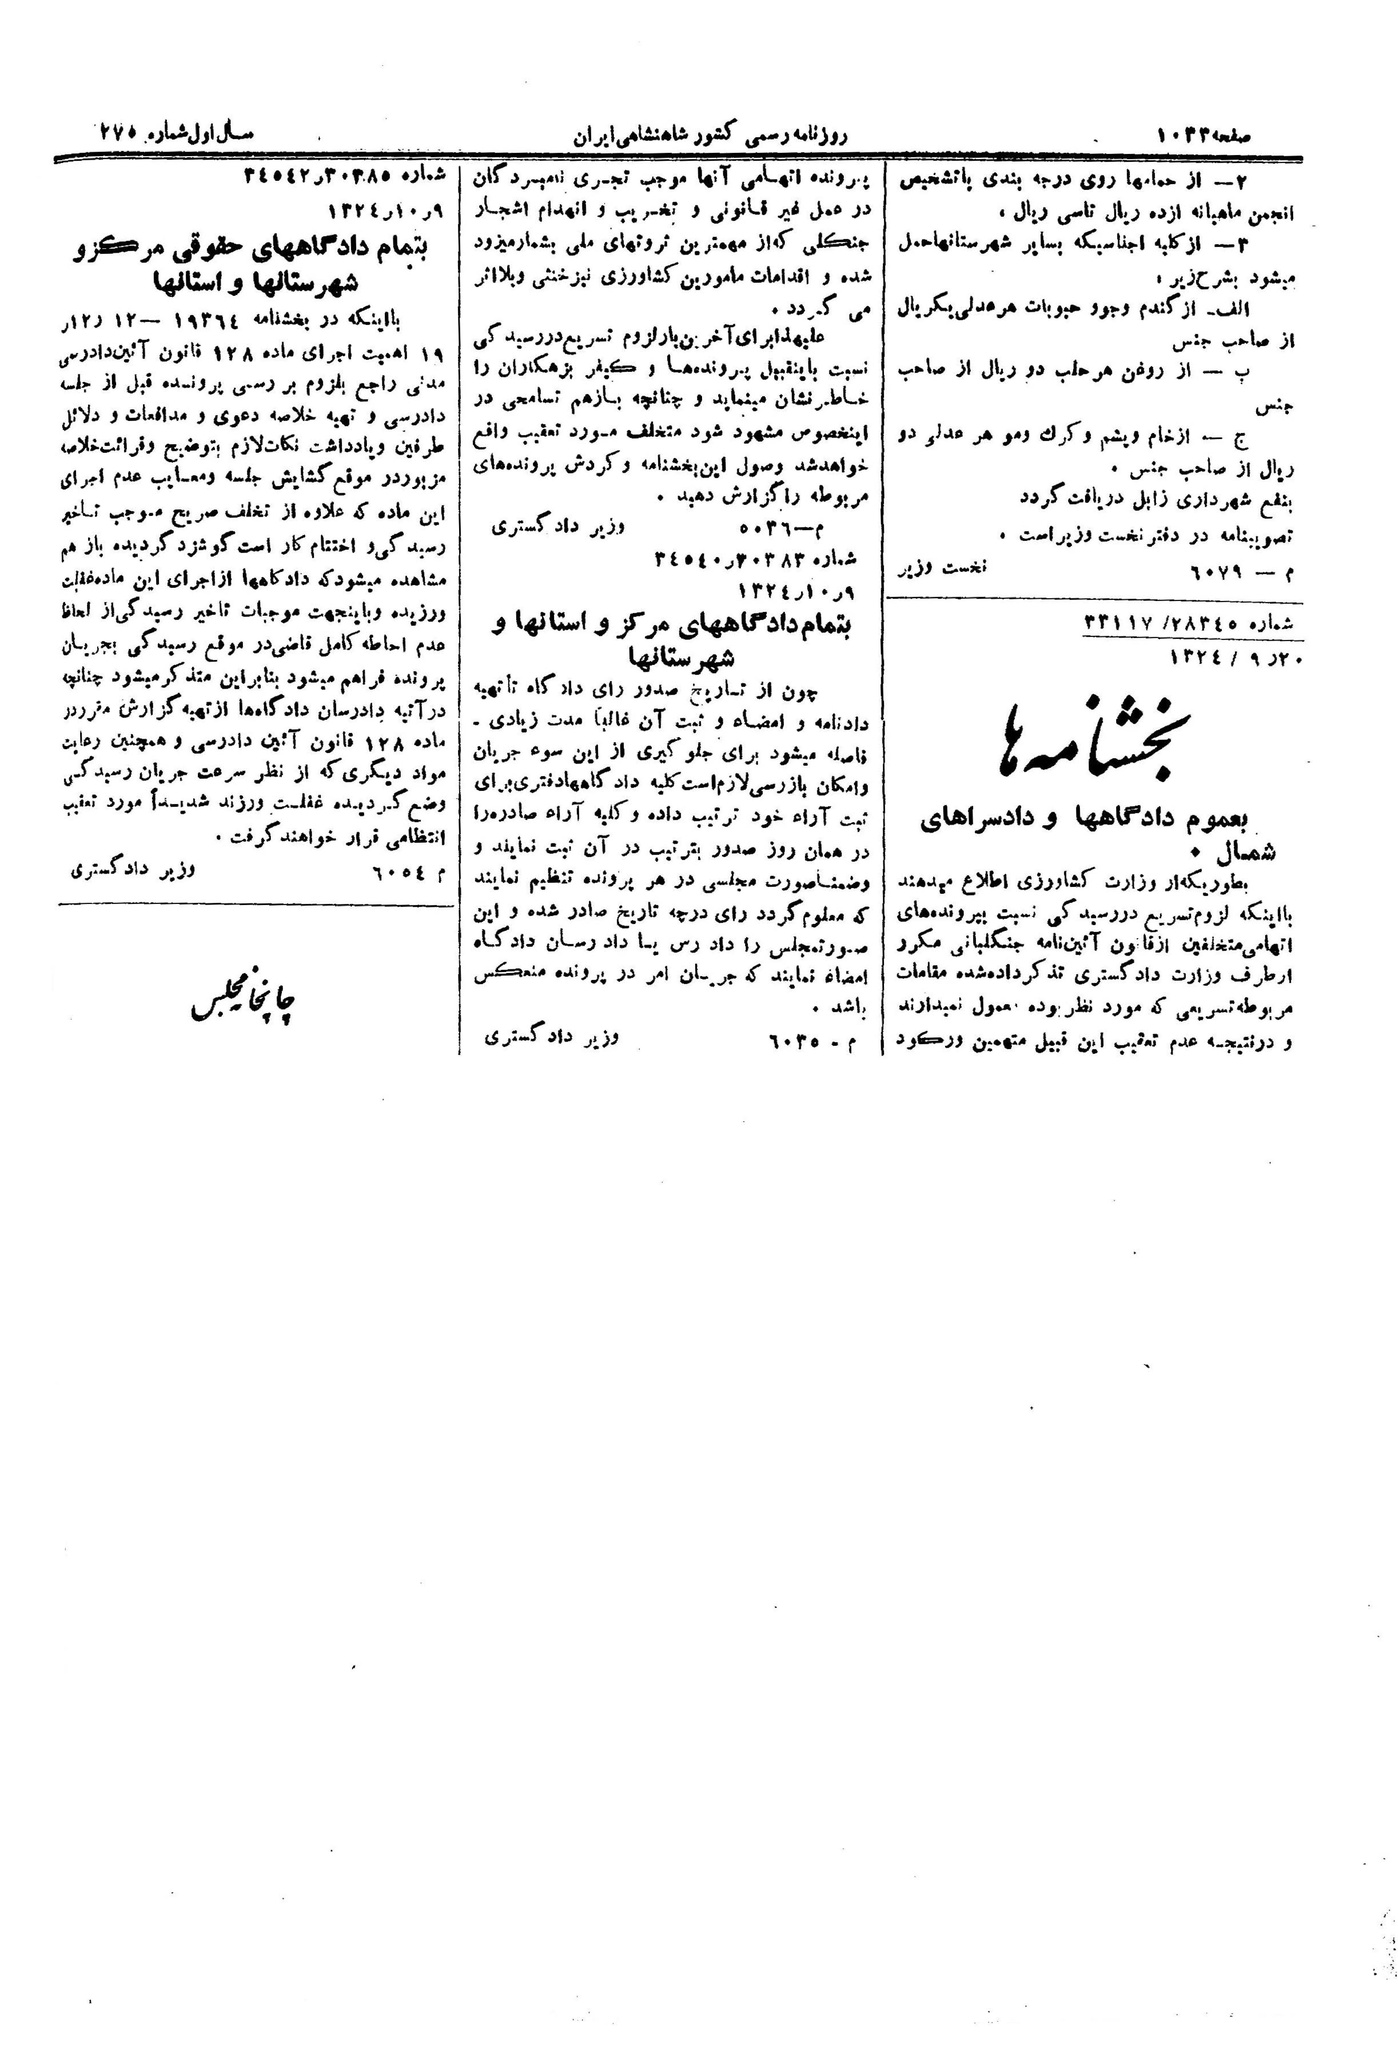 صفحه ۱۰۳۳
روزنامه رسمی کشور شاهنشاهی ایران
سال اول شماره ۲۷۵
۲ — از حمامها روی درجه بندی با تشخیص
انجمن ماهیانه از ده ریال تا سی ریال .
۳ — از کلیه اجناسیکه بسایر شهرستانها حمل
میشود بشرح زیر .
الف - از گندم وجو و حبوبات هر عدلی یکریال
از صاحب جنس
ب — از روغن هر حلب دو ریال از صاحب
جنس
ج — از خام و پشم و کرک و مو هر عدلی دو
ریال از صاحب جنس .
بنفع شهرداری زابل دریافت گردد
تصویبنامه در دفتر نخست وزیر است .
م — ۶۰۷۹ نخست وزیر
شماره ۲۸۳۴۵/ ۳۳۱۱۷
۲۰ر ۹ / ۱۳۲۴
بخشنامه ها
بعموم دادگاهها و دادسراهای
شمال .
بطوریکه از وزارت کشاورزی اطلاع میدهند
با اینکه لزوم تسریع در رسیدگی نسبت بپرونده‌های
اتهامی متخلفین از قانون آئین‌نامه جنگلبانی مکرر
از طرف وزارت دادگستری تذکر داده شده مقامات
مربوطه تسریعی که مورد نظر بوده معمول نمیدارند
و در نتیجه عدم تعقیب این قبیل متهمین و رکود
پرونده اتهامی آنها موجب تجری نامبردگان
در عمل غیر قانونی و تخریب و انهدام اشجار
جنگلی که از مهمترین ثروتهای ملی بشمار میرود
شده و اقدامات مامورین کشاورزی نیز خنثی و بلااثر
می گردد .
علیهذا برای آخرین بار لزوم تسریع در رسیدگی
نسبت باینقبیل پرونده‌ها و کیفر بزهکاران را
خاطر نشان مینماید و چنانچه بازهم تسامحی در
اینخصوص مشهود شود متخلف مورد تعقیب واقع
خواهد شد وصول این بخشنامه و گردش پرونده‌های
مربوطه را گزارش دهید .
م — ۵۰۳۶ وزیر دادگستری
شماره ۳۰۳۸۳ر۳۴۵۴۰
۹ر۱۰ر۱۳۲۴
بتمام دادگاههای مرکز و استانها و
شهرستانها
چون از تاریخ صدور رای دادگاه تا تهیه
دادنامه و امضاء و ثبت آن غالباً مدت زیادی -
فاصله میشود برای جلوگیری از این سوء جریان
وامکان بازرسی لازم است کلیه دادگاهها دفتری برای
ثبت آراء خود ترتیب داده و کلیه آراء صادره را
در همان روز صدور بترتیب در آن ثبت نمایند و
وضمنا صورت مجلسی در هر پرونده تنظیم نمایند
که معلوم گردد رای درچه تاریخ صادر شده و این
صورتمجلس را دادرس یا دادرسان دادگاه
امضاء نمایند که جریان امر در پرونده منعکس
باشد .
م - ۶۰۳۵ وزیر دادگستری
شماره ۳۰۳۸۵ر۳۴۵۴۲
۹ر۱۰ر۱۳۲۴
بتمام دادگاههای حقوقی مرکز و
شهرستانها و استانها
با اینکه در بخشنامه ۱۹۳۶۴ — ۱۲ ر۱۲ر
۱۹ اهمیت اجرای ماده ۱۲۸ قانون آئین دادرسی
مدنی راجع بلزوم بررسی پرونده قبل از جلسه
دادرسی و تهیه خلاصه دعوی و مدافعات و دلائل
طرفین و یادداشت نکات لازم بتوضیح و قرائت خلاصه
مزبور در موقع گشایش جلسه و معایب عدم اجرای
این ماده که علاوه از تخلف صریح موجب تاخیر
رسیدگی و اختتام کار است گوشزد گردیده باز هم
مشاهده میشود که دادگاهها از اجرای این ماده غفلت
ورزیده و باینجهت موجبات تاخیر رسیدگی از لحاظ
عدم احاطه کامل قاضی در موقع رسیدگی بجریان
پرونده فراهم میشود بنابراین متذکر میشود چنانچه
در آتیه دادرسان دادگاه‌ها از تهیه گزارش مقرر در
ماده ۱۲۸ قانون آئین دادرسی و همچنین رعایت
مواد دیگری که از نظر سرعت جریان رسیدگی
وضع گردیده غفلت ورزند شدیداً مورد تعقیب
انتظامی قرار خواهند گرفت .
م ۶۰۵۴ وزیر دادگستری
چاپخانه مجلس